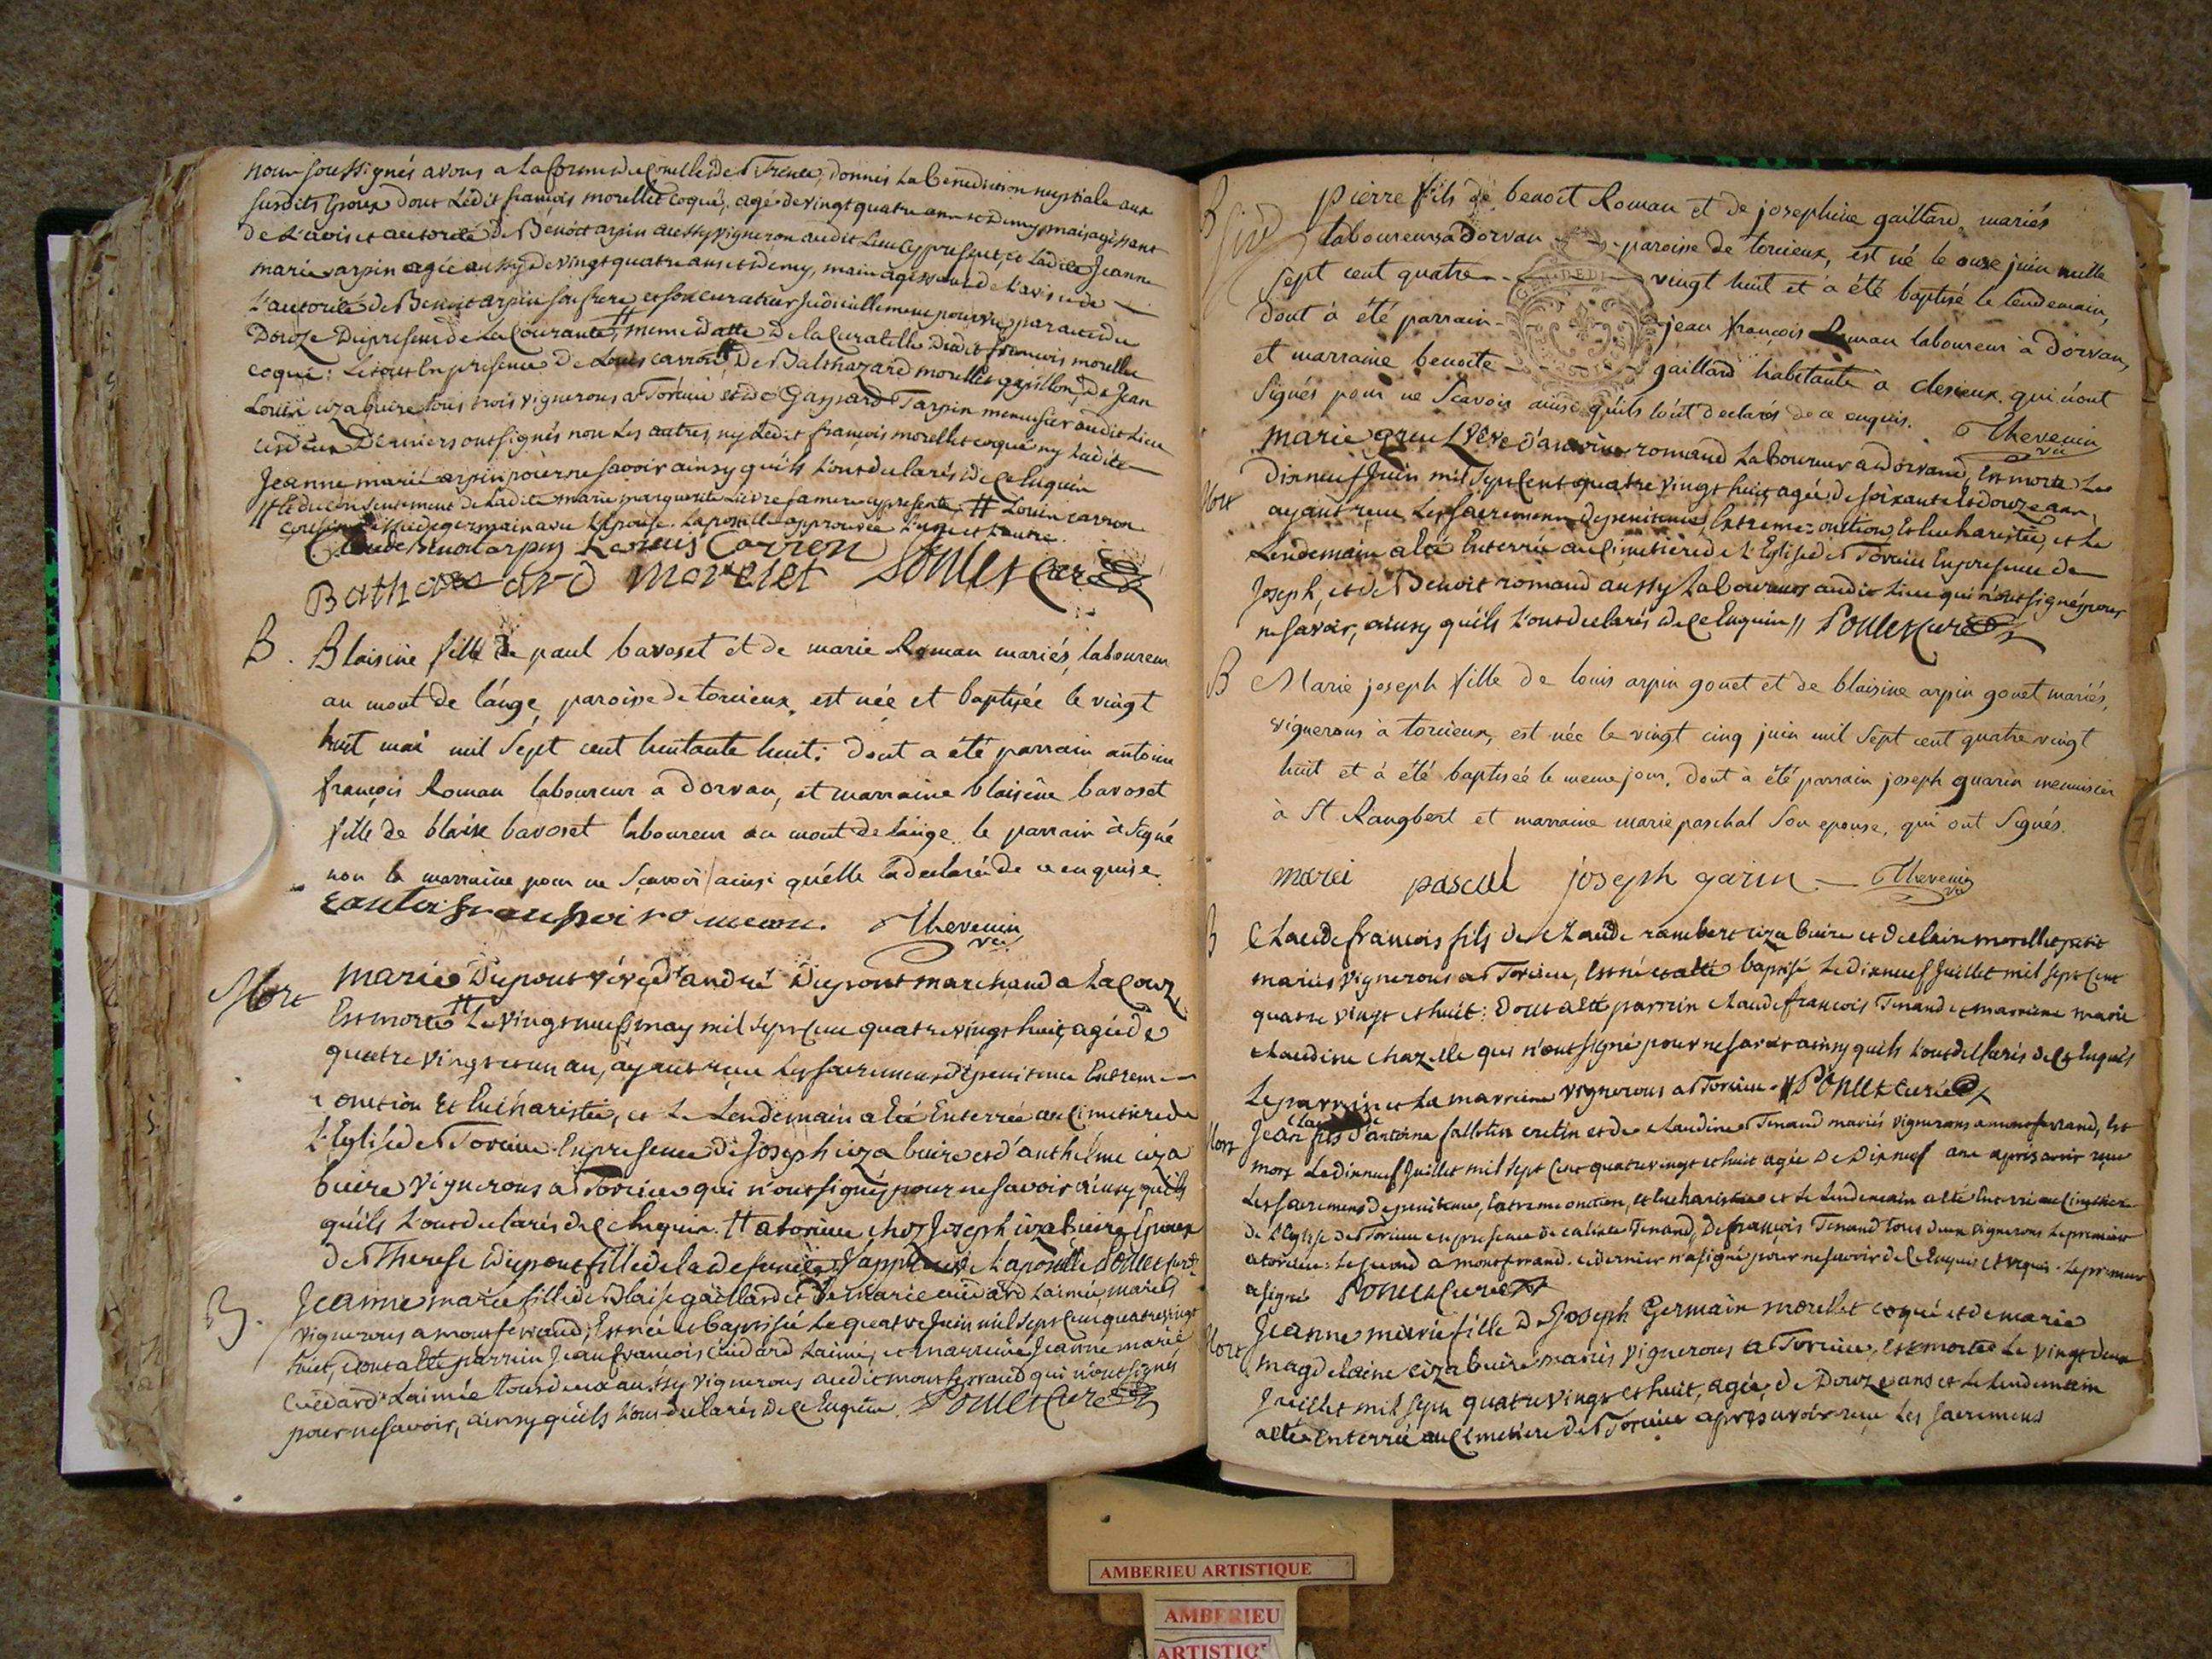 nous soussignés avons a la forme du Concille de Trente, donnés la benediction nuptiale aux
susdits Epoux dont Ledit françois morellet coqué, agé de vingt quatre ans et Demy, mais agissant
de L'avis et autorité de Benoit arpin aussy vigneron audit Lieu cy present, et Ladite Jeanne
marie arpin agée aussy de vingt quatre ans et demy, mais agissant de L'avis et de
L'autorité de Benoit arpin son frere et son curateur Judiciellement pourvu par acte du
Douze Du present de La Courante, meme datte De la Curatelle dudit françois morellet
coqué: Le tout En presence De Louis carron, De Balthazard morellet papillon, De Jean
Louis cizabuire tous trois vignerons a Torcieu et de Gaspard Tarpin menuisier audit Lieu
ces deux Derniers ont signés non Les autres ny Ledit françois morellet coqué ny Ladite
Jeanne marie arpin pour ne savoir ainsy qu'ils L'ont declarés de ce Enquis
et du consentement de Ladite marie marguerite Lievre sa mere cy presente. # Louis carron
cousin issu de germain avec L'epouse. La postille approuvée L'une et L'autre.
Claude Benoit arpin Leouis Carron
Bathazard morelet PONCET Curé
B. Blaisine fille de paul bavoset et de marie Roman mariés, laboureur
au mont de l'ange paroisse de torcieux, est née et baptisée le vingt
huit mai mil sept cent huitante huit: dont a été parrain antoine
françois Roman laboureur a Dorvan, et marraine blaisine bavoset
fille de blaise bavoset laboureur au mont de lange. le parrain a signé
non la marraine pour ne sçavoir ainsi qu'elle l'a declaré de ce enquise.
Thevenin
vic
Mort marie Dupont veve D'andré Dupont marchand a La Couz
Est morte # Le vingt neuf may mil sept Cent quatre vingt huit, agée de
quatre vingt et un an, ayant reçu Les sacremens de penitence Extreme
onction Et Eucharistie, et Le Lendemain a été Enterrée au Cimetiere de
L'Eglise de Torcieu En presence de Joseph ciza buire et d'anthelme ciza
buire vignerons a Torcieu qui n'ont signé pour ne savoir ainsy qu'ils
qu'ils L'ont declarés de ce Enquis. # a torcieu chez Joseph cizabuire Epoux
de Therese Dupont fille de la defunte. J'approuve L'apostille PONCET Curé
B. Jeanne marie fille de Blaise gaillard et de marie cuidard Laimé, mariés
vignerons a montferrand, Est née et baptisée Le quatre Juin mil sept Cent quatre vingt
huit, dont a été parrain Jean françois Cuidard Laimé, et marraine Jeanne marie
Cuedard Laimée tous deux aussy vignerons audit montferrand qui n'ont signés
pour ne savoir, ainsy qu'ils L'ont declarés de ce Enquis. PONCET Curé
B Pierre fils de benoit Roman et de josephine gaillard, mariés
laboureurs a Dorvan paroisse de torcieux, est né le onze juin mille
sept cent quatre vingt huit et a été baptisé le lendemain,
dont à été parrain jean françois Roman laboureur à Dorvan,
et marraine benoite gaillard habitante à clesieux. qui n'ont
signés pour ne sçavoir ainsi qu'ils l'ont declarés de ce enquis. Thevenin
vic
Mort marie greu veve d'antoine romand Laboureur a Dorvand, Est morte Le
Dixneuf Juin mil sept Cent quatre vingt huit, agée de soixante et douze ans,
ayant reçu Les sacremens de penitence, Extreme-onction, Et Eucharistie, et Le
Lendemain a été Enterrée au Cimetiere de L'Eglise de Torcieu En presence de
Joseph, et de Benoit romand aussy Laboureurs audit Lieu qui n'ont signé pour
ne savoir, ainsy qu'ils L'ont declarés de ce Enquis // PONCET Curé
B Marie joseph fille de louis arpin gonet et de blaisine arpin gonet mariés,
vignerons à torcieux, est née le vingt cinq juin mil sept cent quatre vingt
huit et à été baptisée le meme jour. dont à été parrain joseph guarin menuisier
à St Rangbert et marraine marie paschal son epouse, qui ont signés.
marei pascal joseph garin Thevenin
vic
B Claude françois fils de Claude rambert ciza buire et de claire morellet petit
mariés vignerons a Torcieu, Est né et a été baptisé Le dixneuf Juillet mil sept Cent
quatre vingt et huit: dont a été parrein Claude françois Tenand et marreine marie
claudine chazelle qui n'ont signé pour ne savoir ainsy qu'ils L'ont declarés de ce Enquis
Le parrein et La marreine vignerons a Torcieu. // PONCET Curé
Mort Jean fils d'antoine falletin cretin et de claudine Tenand mariés vignerons a montferrand, Est
mort Le dixneuf Juillet mil sept Cent quatre vingt et huit agée De Dixneuf ans après avoir reçu
Les sacremens de penitence, Extreme onction, et Eucharistie et Le Lendemain a été Enterré au Cimetiere
de L'Eglise de Torcieu en presence de Tenand, De françois Tenand tous deux vignerons Le premier
a torcieu: Le second a montferrand. ce dernier n'a signé pour ne savoir de ce Enquis et requis. Le premier
a signé PONCET Curé
Mort Jeanne marie fille de Joseph Germain morellet coqué et de marie
magdelaine cizabuire mariés vignerons a Torcieu, est morte Le vingt deux
Juillet mil sept quatre vingt et huit, agée de Douze ans et Le Lendemain
a été Enterrée au Cimetiere de Torcieu après avoir reçu Les sacremens
AMBERIEU ARTISTIQUE
AMBERIEU